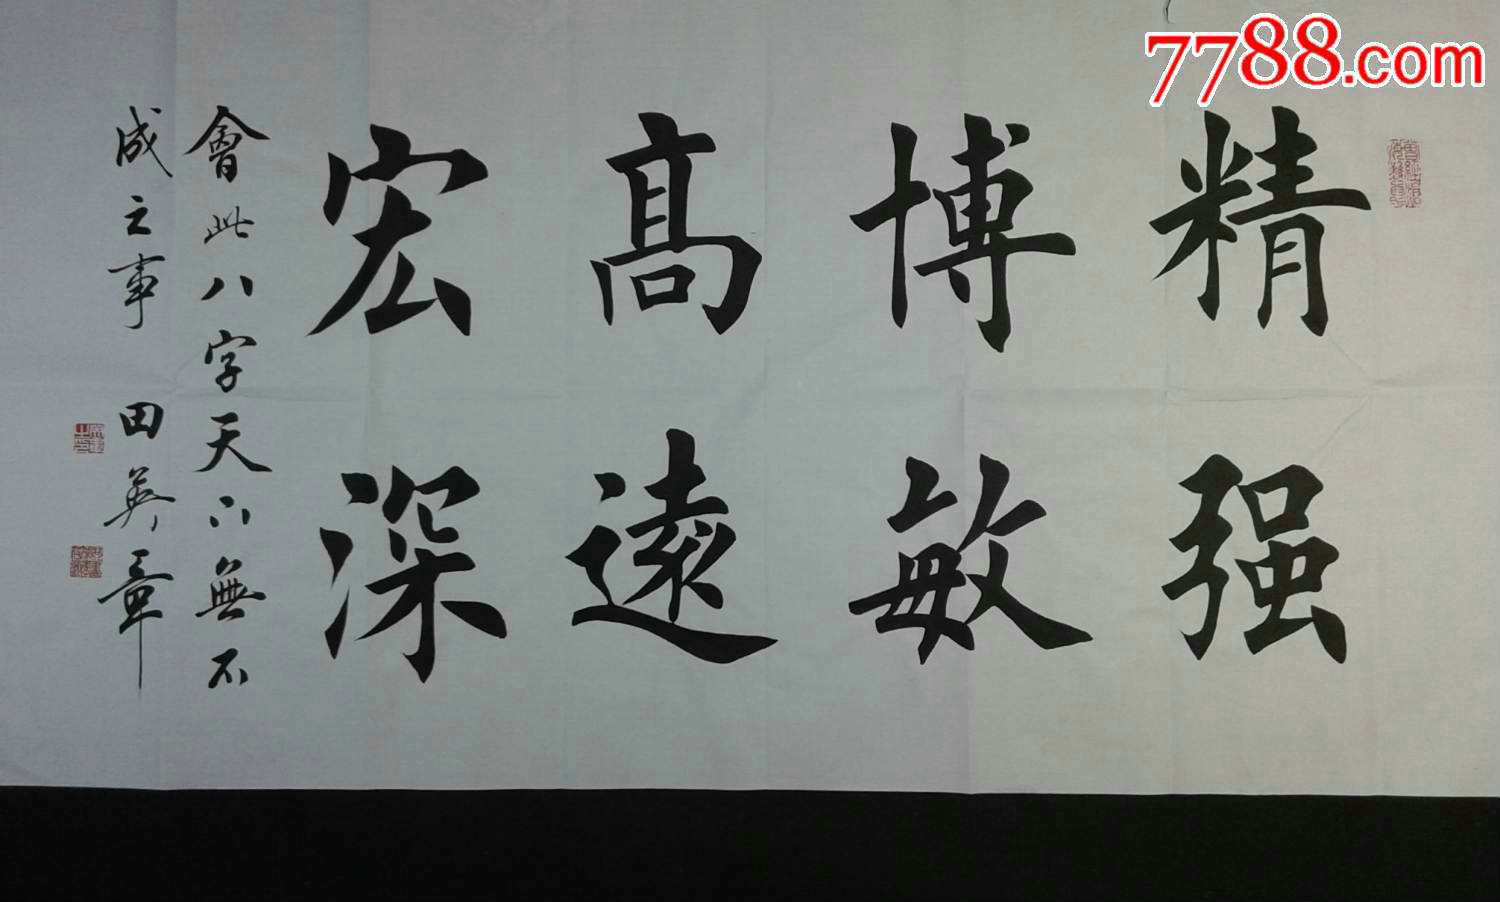 7788.com
精强
博敏
高遠
宏深
會此八字天下無不
成之事 田英章